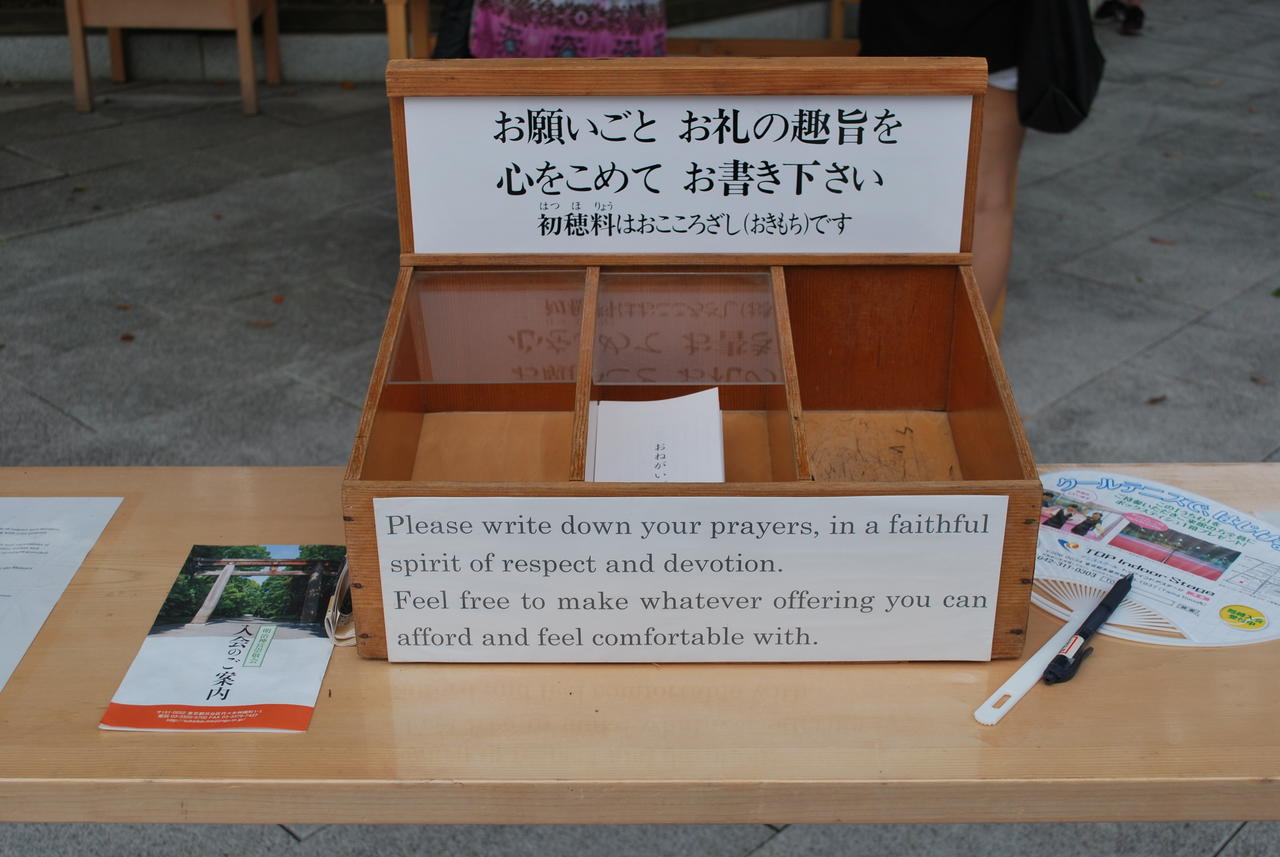 お願いごと お礼の趣旨を
心をこめて お書き下さい
はつ ほ りょう
初穂料はおこころざし(おきもち)です
おねがい
Please write down your prayers, in a faithful
spirit of respect and devotion.
Feel free to make whatever offering you can
afford and feel comfortable with.
入会のご案内
TOP Indoor Stage